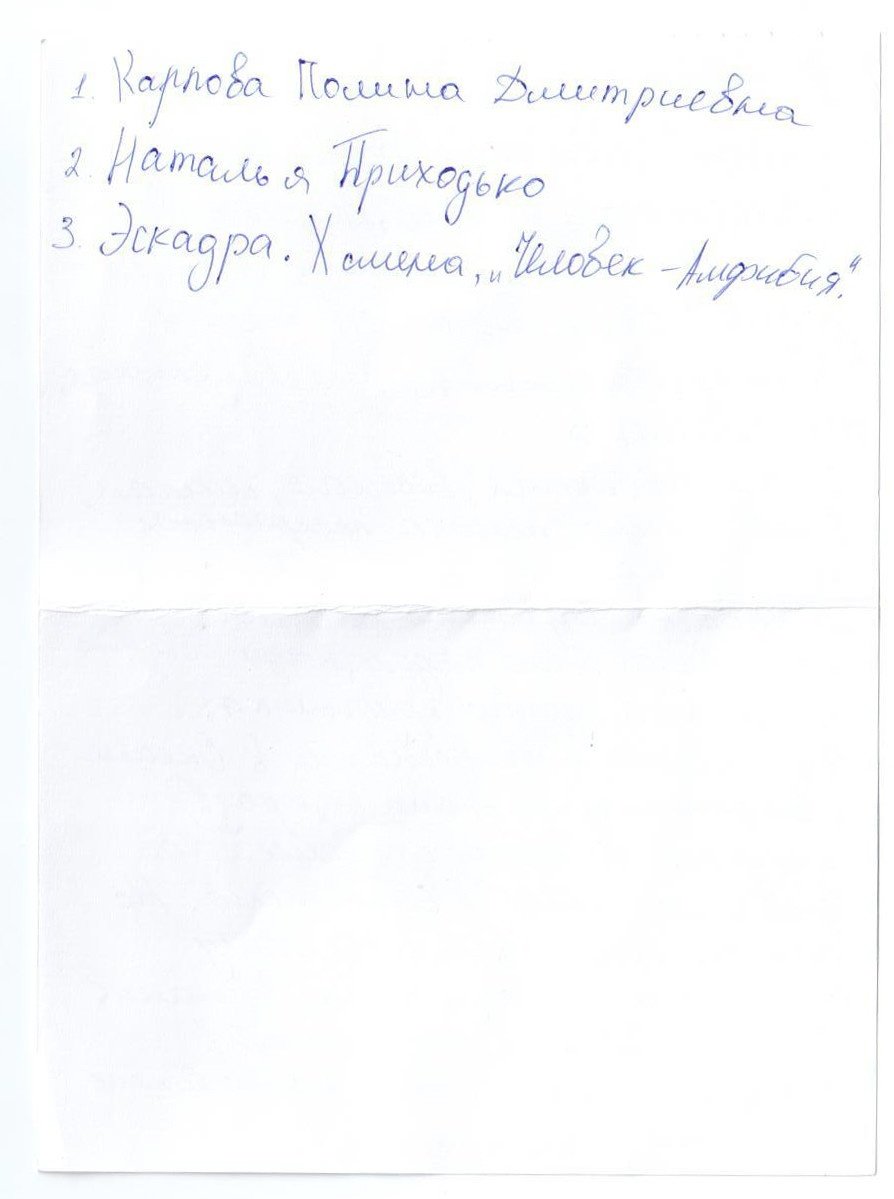 1. Карпова Полина Дмитриевна
2. Наталья Приходько
3. Эскадра. Химена, „Человек-Амфибия."